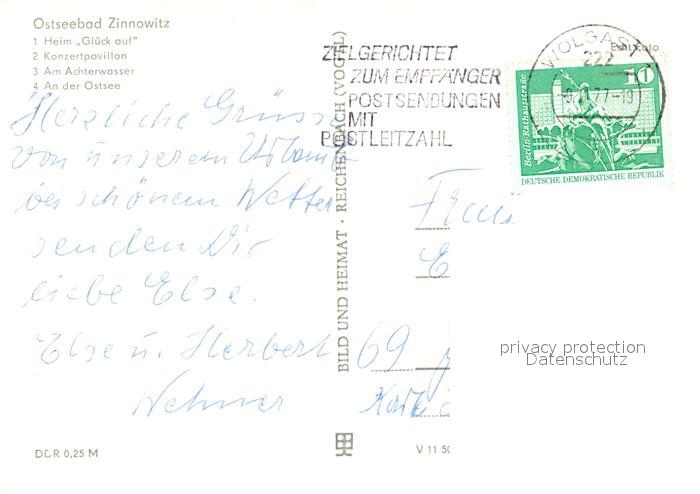 Ostseebad Zinnowitz
1 Heim „Glück auf“
2 Konzertpavillon
3 Am Achterwasser
4 An der Ostsee
Herzliche Grüsse
von unserem
bei schönem Wetter
senden Dir
liebe Else.
Else u. Herbert
Wehner
DDR 0,25 M
BILD UND HEIMAT · REICHENBACH (VOGTL)
ZIELGERICHTET
ZUM EMPFÄNGER
POSTSENDUNGEN
MIT
POSTLEITZAHL
WOLGAST
222
77-19
10
Berlin, Rathausstraße
DEUTSCHE DEMOKRATISCHE REPUBLIK
Frau
E
69
privacy protection
Datenschutz
V 11 50